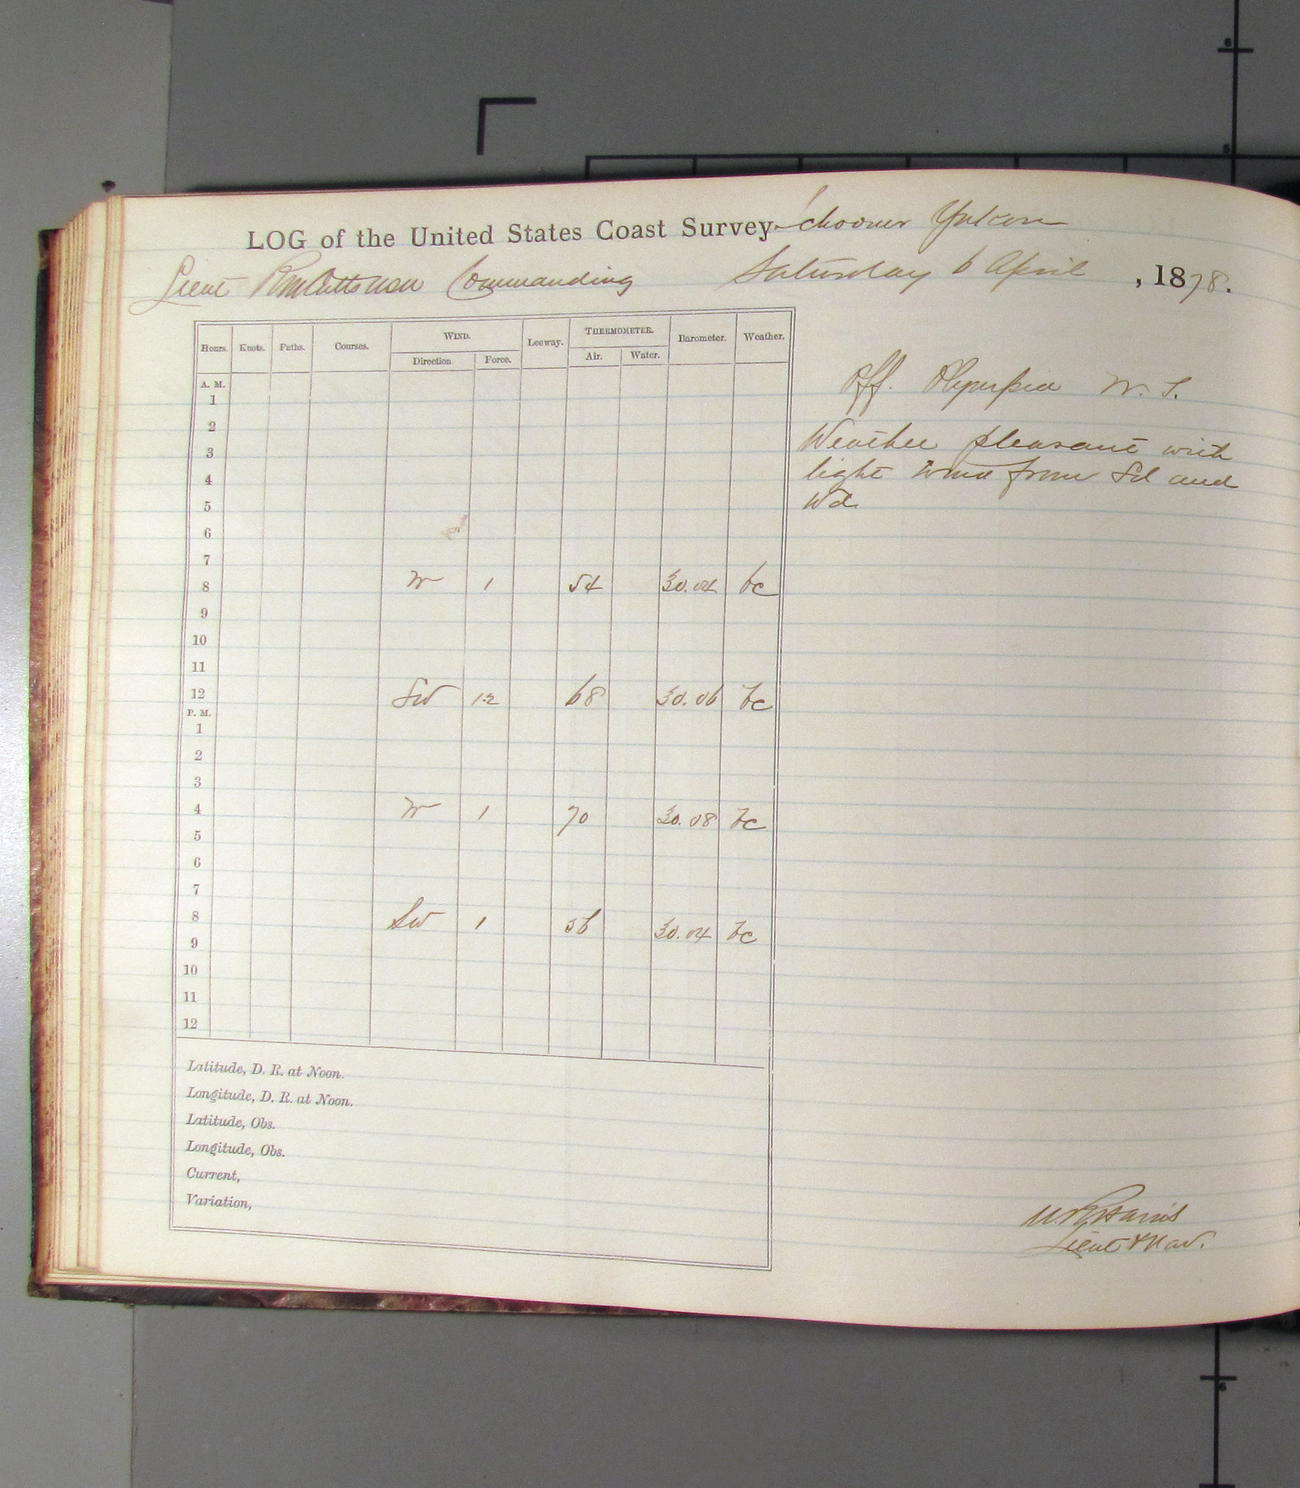 LOG of the United States Coast Survey Schooner Yukon
Lieut R M Cutts USN Commanding Saturday 6 April , 1878.
Hours. Knots. Faths. Courses. WIND. Leeway. THERMOMETER. Barometer. Weather.
Direction. Force. Air. Water.
Off. Olympia W. T.
Weather pleasant with
light wind from Sd and
Wd.
A. M.
1
2
3
4
5
6
7
8 W 1 54 30.04 bc
9
10
11
12 SW 1-2 68 30.06 bc
P. M.
1
2
3
4 W 1 70 30.08 bc
5
6
7
8 SW 1 56 30.04 bc
9
10
11
12
Latitude, D. R. at Noon.
Longitude, D. R. at Noon.
Latitude, Obs.
Longitude, Obs.
Current,
Variation,
Harris
Lieut & Nav.
6
5
5